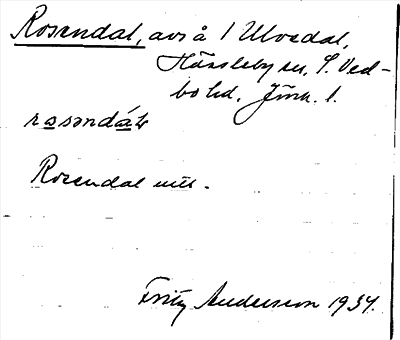 Rosendal, avs å 1 Ulvedal,
Hässleby sn, S. Ved-
bo hd. Jönk. l.
rosəndáɫ
Rosendal utt.
Fritz Anderson 1934.